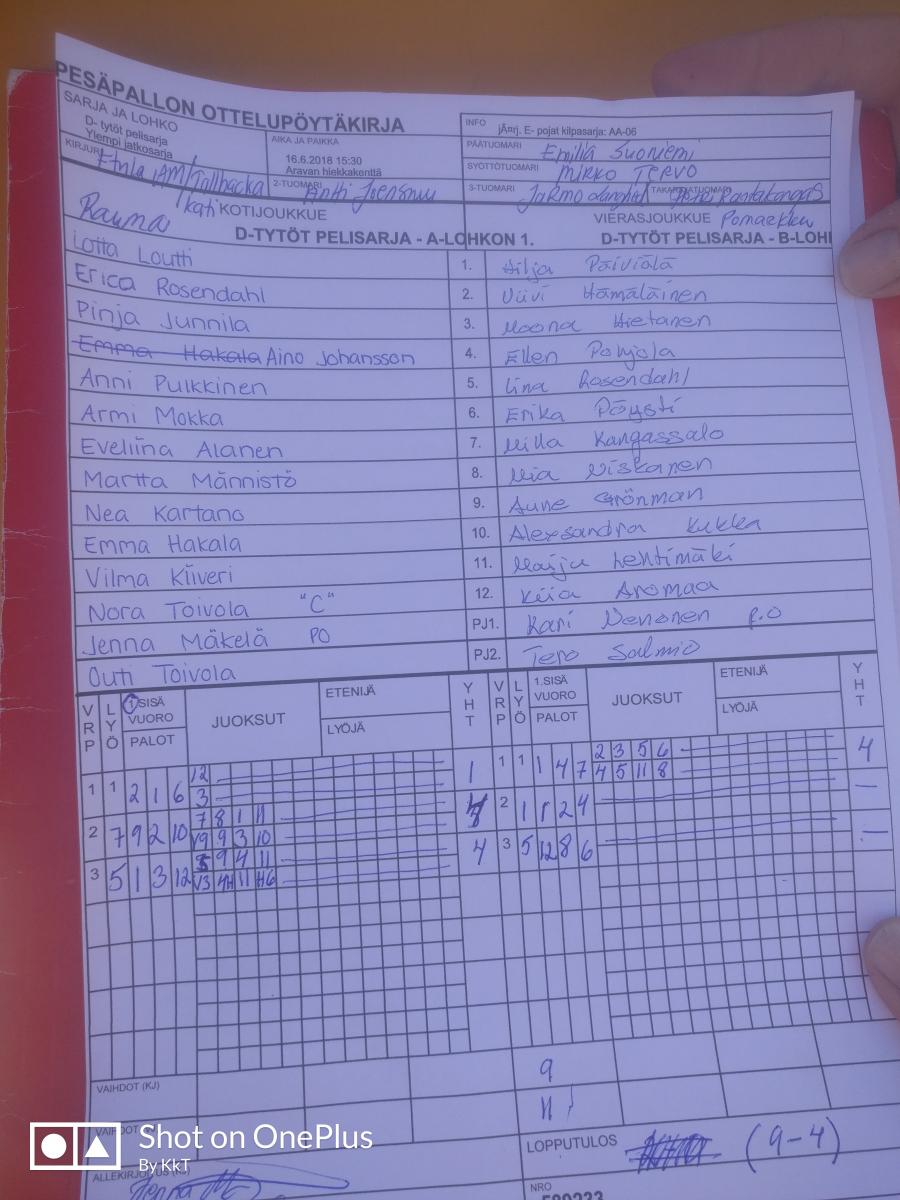 PESÄPALLON OTTELUPÖYTÄKIRJA
SARJA JA LOHKO
D- tytöt pelisarja
Ylempi jatkosarja
AIKA JA PAIKKA
16.6.2018 15:30
Aravan hiekkakenttä
INFO
jÃ¤rj. E- pojat kilpasarja: AA-06
PÄÄTUOMARI Emilia Suoniemi
SYÖTTÖTUOMARI Mikko Tervo
KIRJURI
2-TUOMARI Antti Joensuu
3-TUOMARI Jarmo
Rauma Kati
KOTIJOUKKUE
VIERASJOUKKUE Pomarkku
D-TYTÖT PELISARJA - A-LOHKON 1.
D-TYTÖT PELISARJA - B-LOH
Lotta Loutti 1. Hilja Päiviölä
Erica Rosendahl 2. Viivi Hämäläinen
Pinja Junnila 3. Moona Hietanen
Emma Hakala Aino Johansson 4. Ellen Pohjola
Anni Pulkkinen 5. Iina Rosendahl
Armi Mokka 6. Erika Pöysti
Eveliina Alanen 7. Milla Kangassalo
Martta Männistö 8. Mia Niskanen
Nea Kartano 9. Aune Grönman
Emma Hakala 10. Alexsandra Kukka
Vilma Kiiveri 11. Maiju Lehtimäki
Nora Toivola "C" 12. Kiia Aromaa
Jenna Mäkelä PO PJ1. Kari Nenonen P.O
Outi Toivola PJ2. Tero Salmio
VRP LYÖ 1.SISÄ VUORO PALOT JUOKSUT ETENIJÄ LYÖJÄ YHT
VRP LYÖ 1.SISÄ VUORO PALOT JUOKSUT ETENIJÄ LYÖJÄ YHT
1 1 2 1 6 12 3 1
1 1 1 4 7 2 3 5 6 4 5 11 8 4
2 7 9 2 10 7 8 1 11 V9 9 3 10 4
2 1 1 2 4 —
3 5 1 3 12 9 4 11 V3 4H 11 H6 4
3 5 12 8 6 —
VAIHDOT (KJ)
9
VAIHDOT
11
ALLEKIRJOITUS (KJ)
LOPPUTULOS (9-4)
NRO
Shot on OnePlus
By KkT